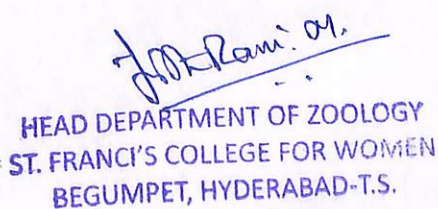 HEAD DEPARTMENT OF ZOOLOGY
ST. FRANCI'S COLLEGE FOR WOMEN
BEGUMPET, HYDERABAD-T.S.